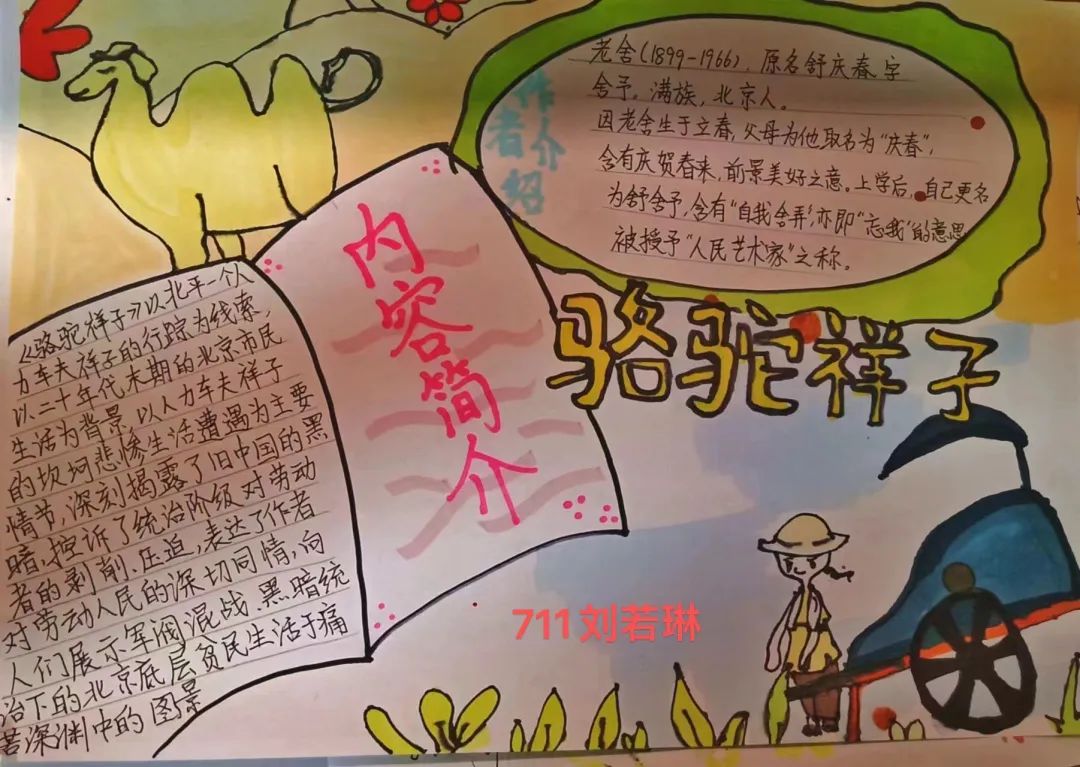 作者介绍
老舍(1899-1966)，原名舒庆春字
舍予。满族，北京人。
因老舍生于立春，父母为他取名为"庆春"，
含有庆贺春来，前景美好之意。上学后，自己更名
为舒舍予，含有"自我舍弃，亦即"忘我"的意思
被授予"人民艺术家"之称。
骆驼祥子
内容简介
《骆驼祥子》以北平一个人
力车夫祥子的行踪为线索，
以二十年代末期的北京市民
生活为背景，以人力车夫祥子
的坎坷悲惨生活遭遇为主要
情节，深刻揭露了旧中国的黑
暗，控诉了统治阶级对劳动
者的剥削、压迫，表达了作者
对劳动人民的深切同情，向
人们展示军阀混战、黑暗统
治下的北京底层贫民生活于痛
苦深渊中的图景
711刘若琳